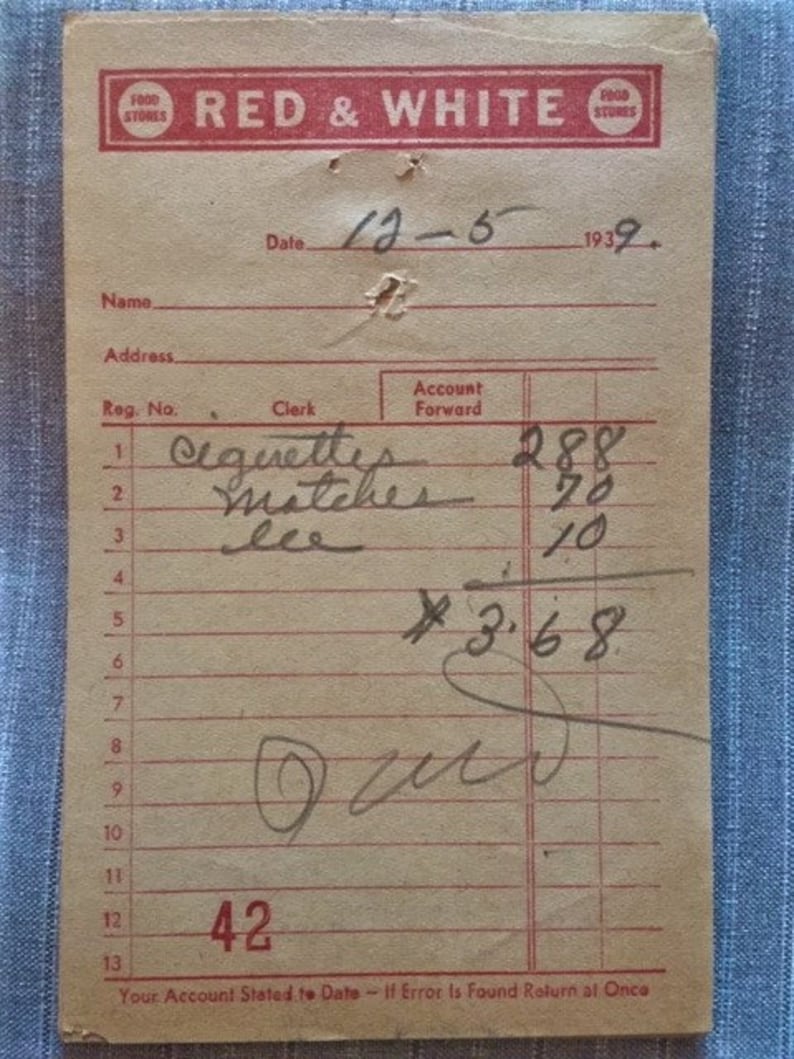 FOOD STORES RED & WHITE FOOD STORES
Date 12-5 1939.
Name
Address
Reg. No. Clerk Account Forward
1 Cigerettes 288
2 Matches 70
3 Ice 10
4
5 $3.68
6
7
8
9
10
11
12 42
13
Your Account Stated to Date – If Error Is Found Return at Once